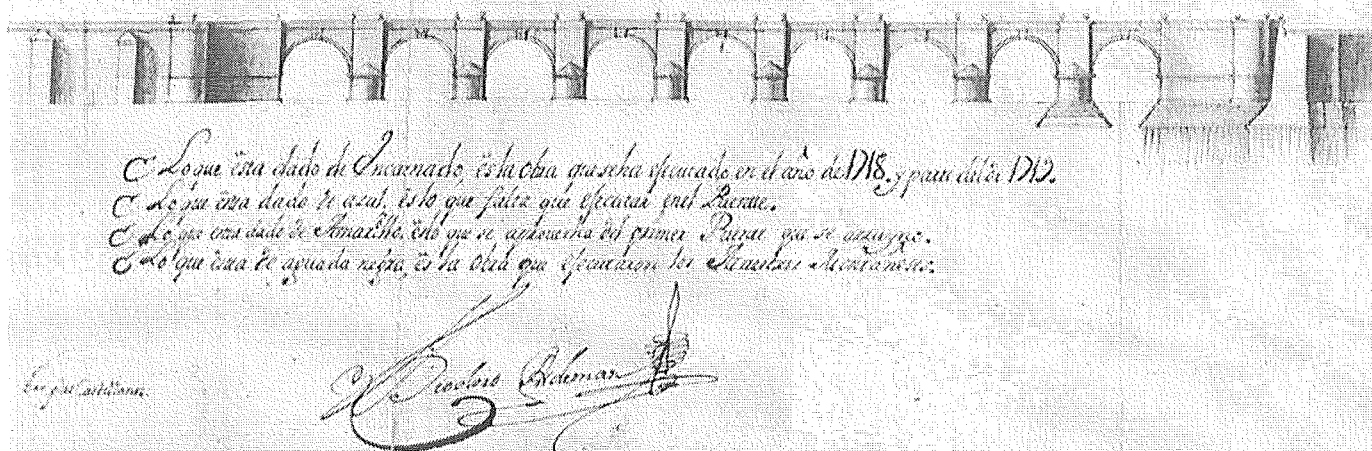 Lo que esta dado de Incarnado, es la obra que se ha executado en el año de 1718. y parte del de 1719.
Lo que esta dado de azul, es lo que falta que executar en el Puente.
Lo que esta dado de Amarillo, es lo que se del primer Puente que se arruyno.
Lo que esta de aguada negra, es la obra que executaron los Maestros Montañeses.
Theodoro Ardemans